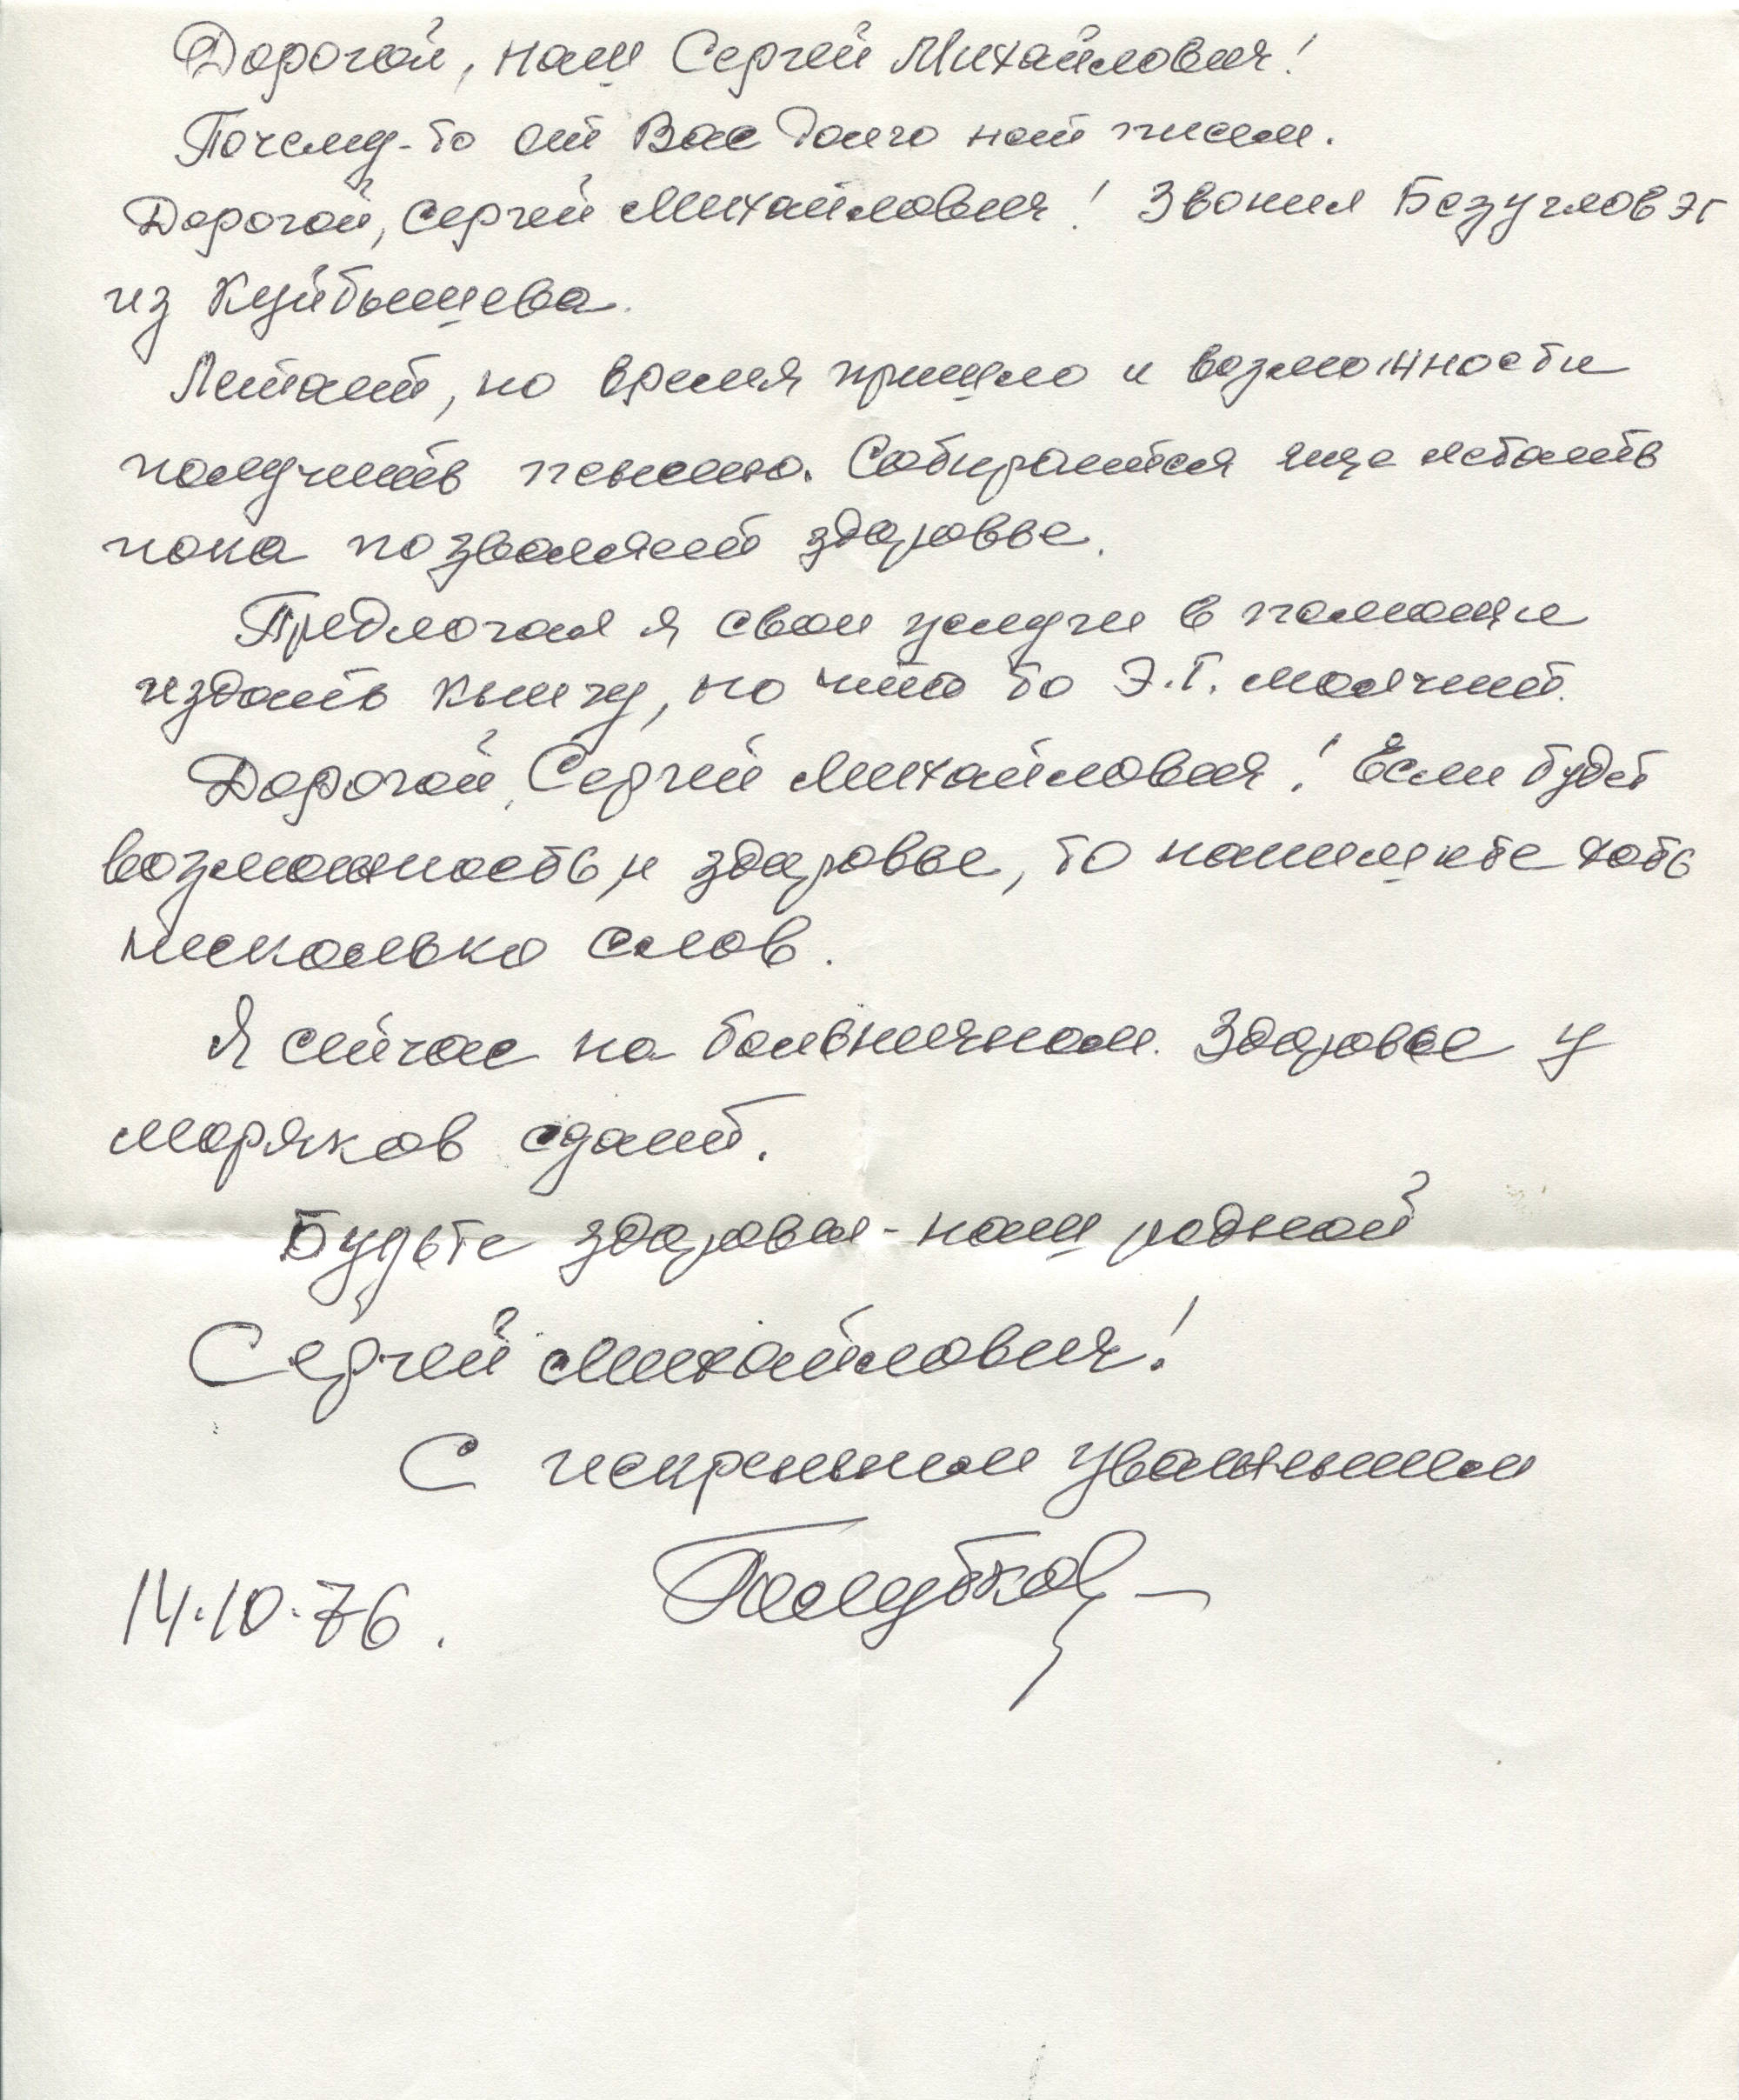 Дорогой, наш Сергей Михайлович!
Почему-то от Вас долго нет писем.
Дорогой, Сергей Михайлович! Звонил Безуглов ЭГ
из Куйбышева.
Летает, но время пришло и возможности
получить пенсию. Собирается еще летать
пока позволяет здоровье.
Предлогал я свои услуги в помощи
издать книгу, но что то Э.Г. молчит.
Дорогой, Сергей Михайлович! Если будет
возможность, и здоровье, то напишите хоть
несколько слов.
Я сейчас на больничном. Здоровье у
моряков сдает.
Будьте здоровы - наш родной
Сергей Михайлович!
С искренним уважением
14.10.76.